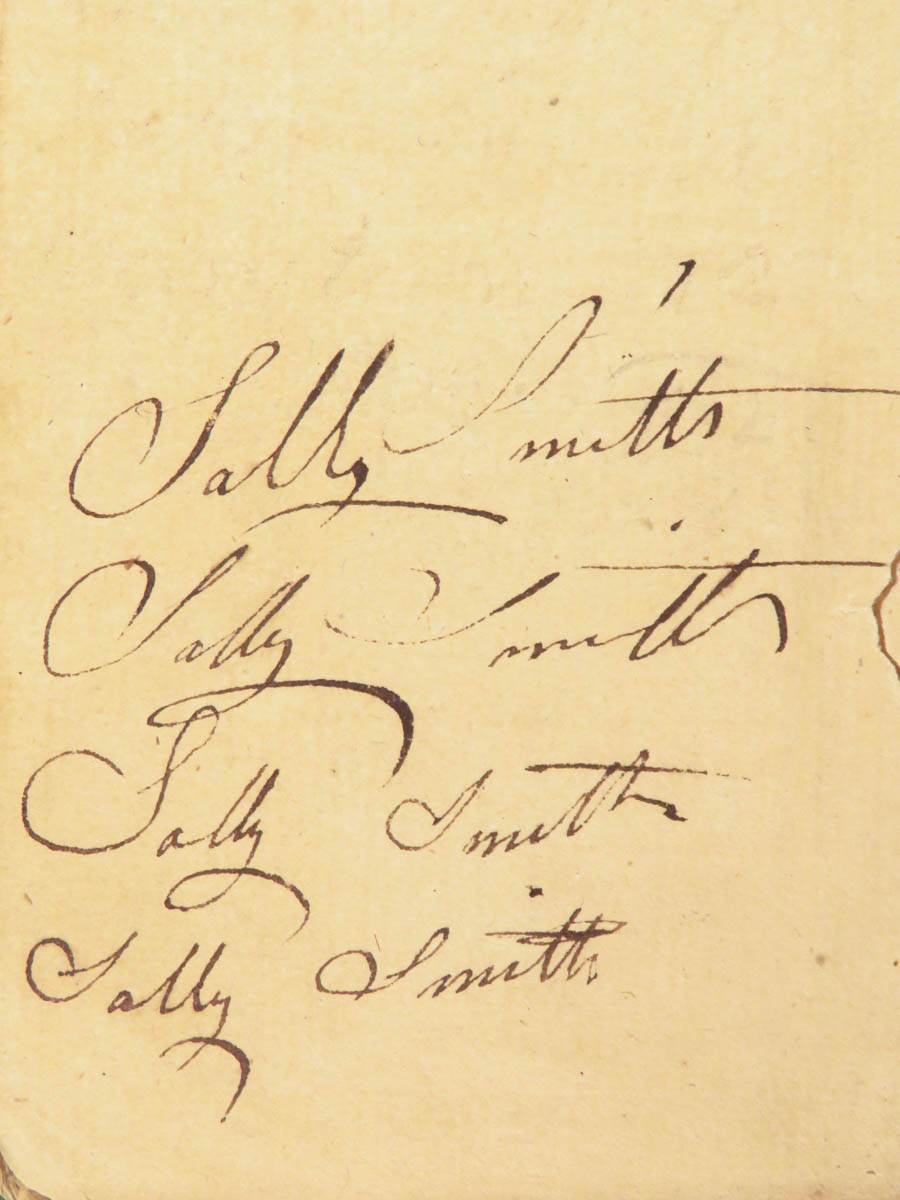 Sally Smith
Sally Smith
Sally Smith
Sally Smith